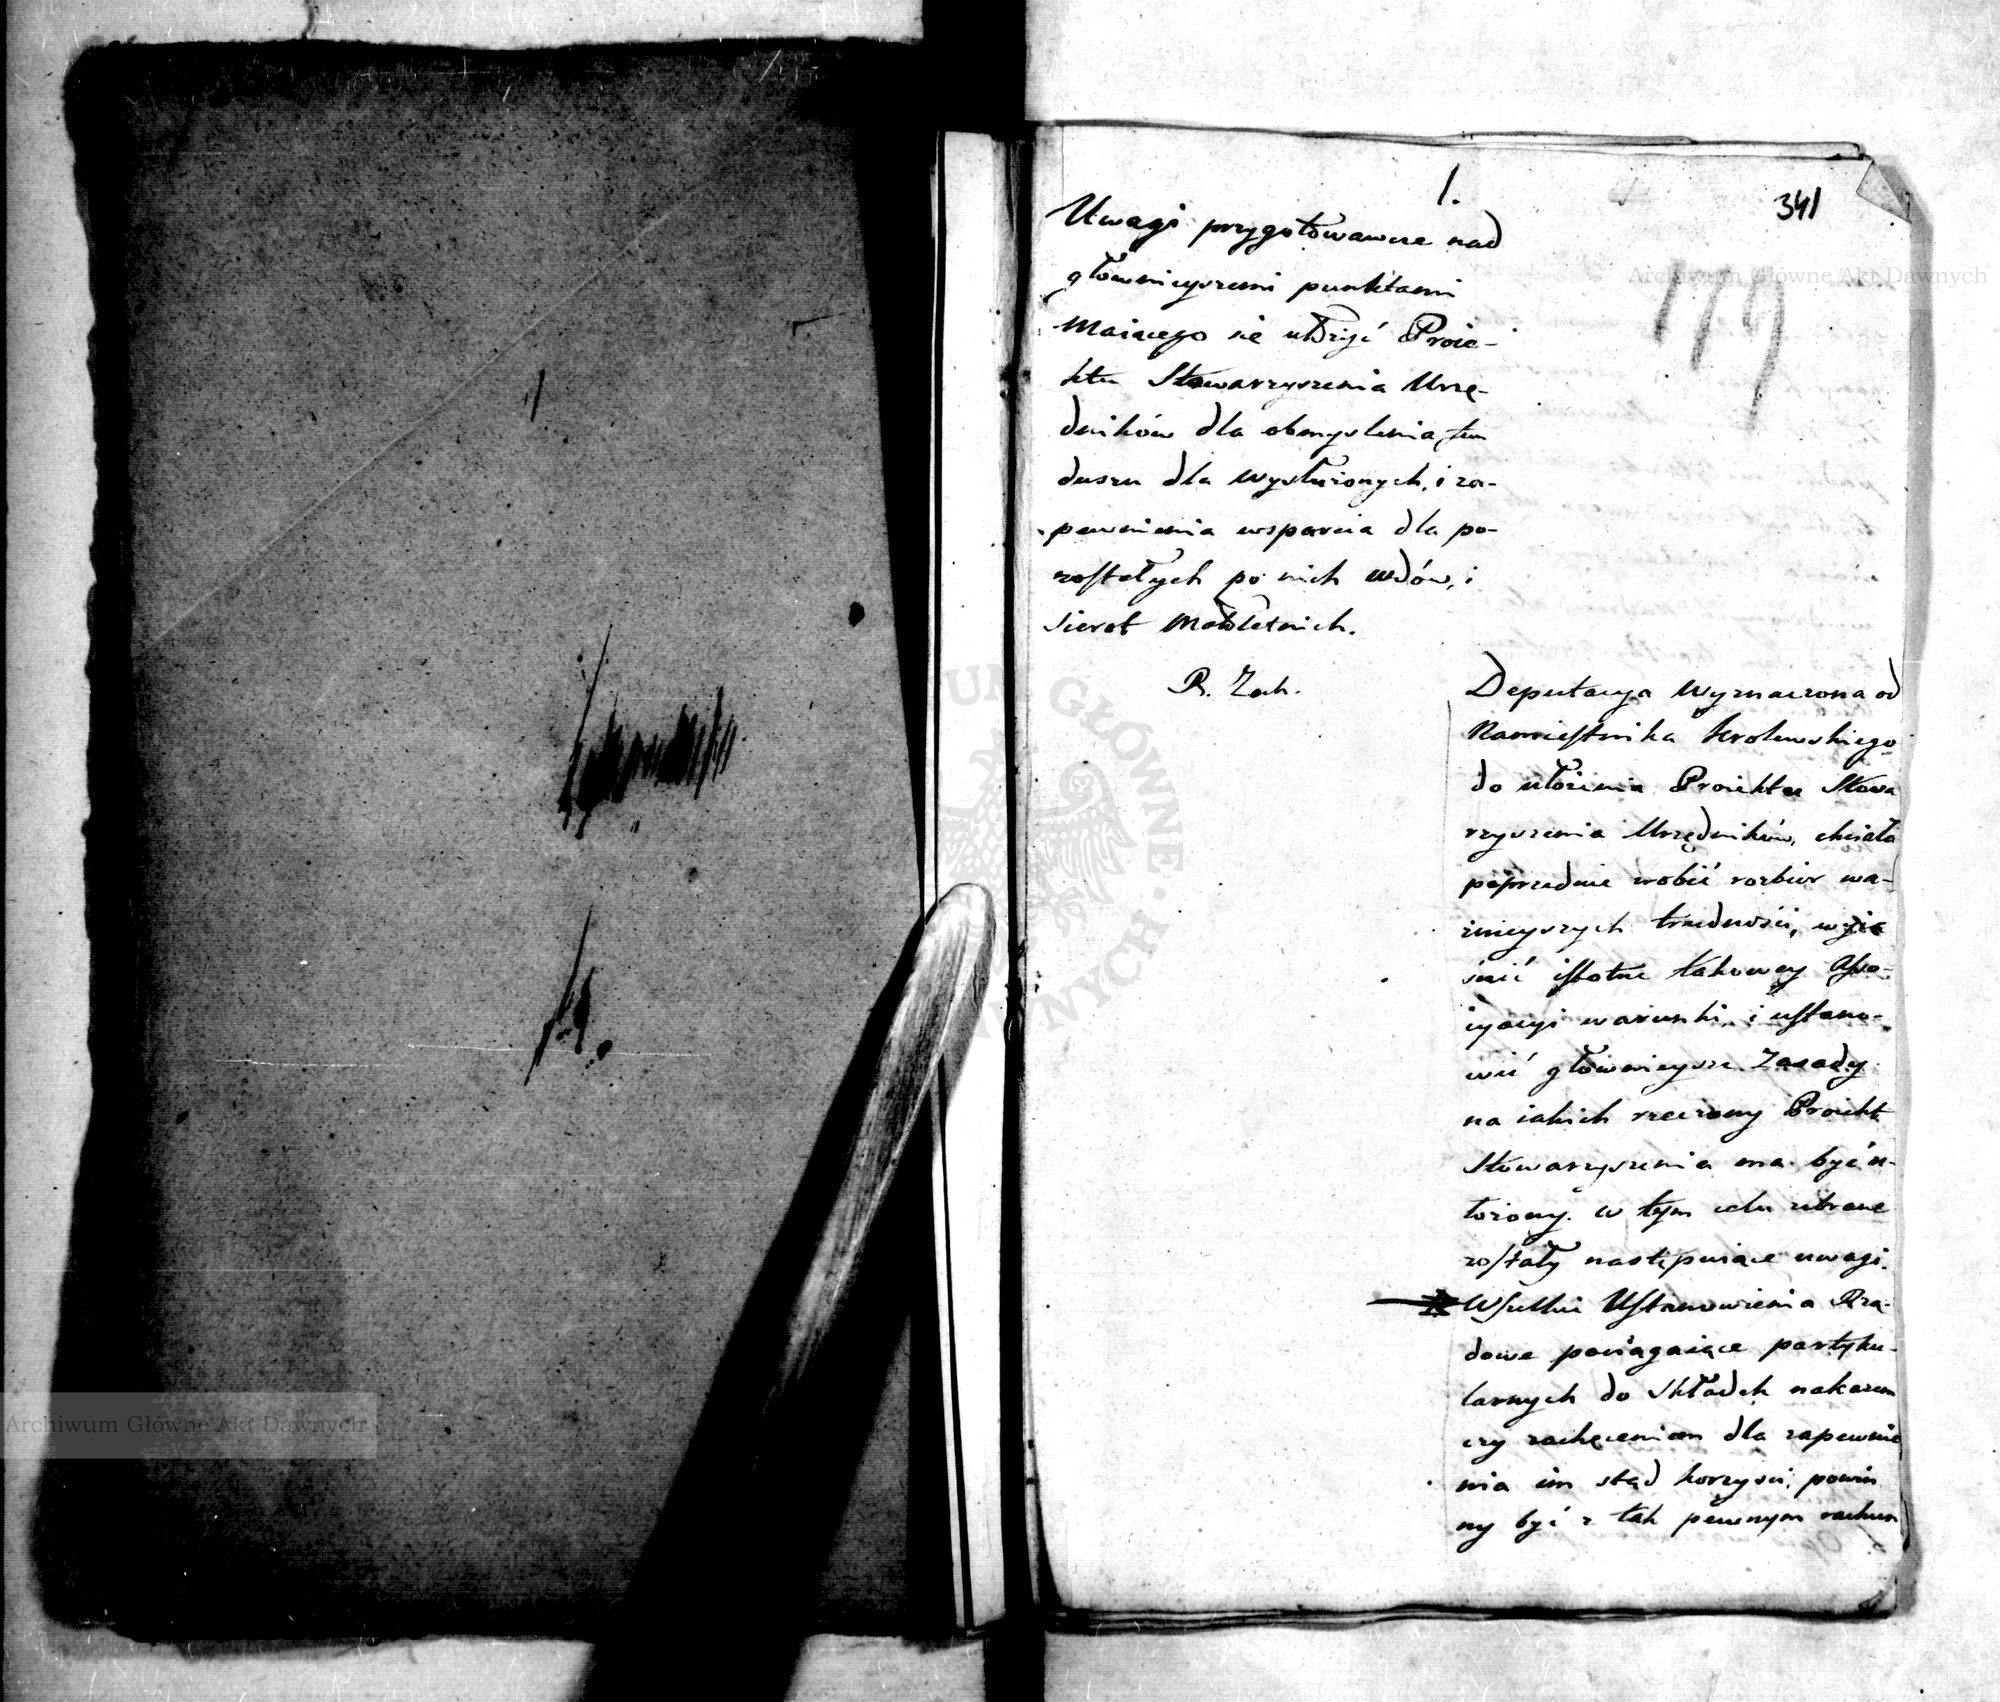 1.
341
Uwagi przygotowawcze nad
głównieyszemi punktami
Maiącego się ułożyć Proie-
ktu Stowarzyszenia Urzę-
dników dla obmyslenia fun
duszu dla wysłużonych, i za-
pewnienia wsparcia dla po-
zostałych po nich wdów, i
Sierot Małoletnich.
R. Zach.
Deputacya Wyznaczona od
Namiestnika Krolewskiego
do ułożenia Proiektu Stowa
rzyszenia Urzędników, chciała
poprzednie zrobić rozbior wa-
żnieyszych trudności, wyia
śnić istotne takowey Asso-
cyacyi warunki, i ustano-
wić głównieysze Zasady
na iakich rzeczony Proiekt
Stowarzyszenia ma być u-
łożony. w tym celu zebrane
zostały następuiące uwagi.
Wszelkie Ustanowienia Rzą-
dowe pociągaiące partyku-
larnych do Składek nakazem
czy zachęceniem dla zapewnie
nia im stąd korzysci, powin
ny być z tak pewnym rachun
Archiwum Główne Akt Dawnych
Archiwum Główne Akt Dawnych